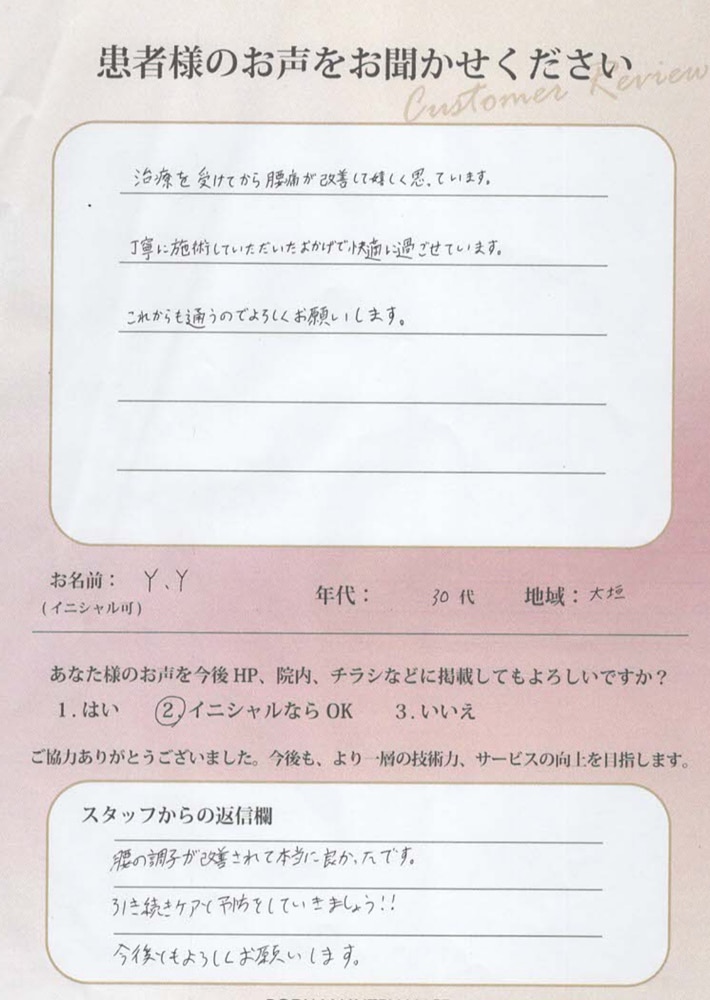 患者様のお声をお聞かせください
Customer Review
治療を受けてから腰痛が改善して嬉しく思っています。
丁寧に施術していただいたおかげで快適に過ごせています。
これからも通うのでよろしくお願いします。
お名前： Y、Y
(イニシャル可)
年代： 30 代
地域： 大垣
あなた様のお声を今後 HP、院内、チラシなどに掲載してもよろしいですか？
1.はい ②.イニシャルなら OK 3.いいえ
ご協力ありがとうございました。今後も、より一層の技術力、サービスの向上を目指します。
スタッフからの返信欄
腰の調子が改善されて本当に良かったです。
引き続きケアと予防をしていきましょう!!
今後ともよろしくお願いします。